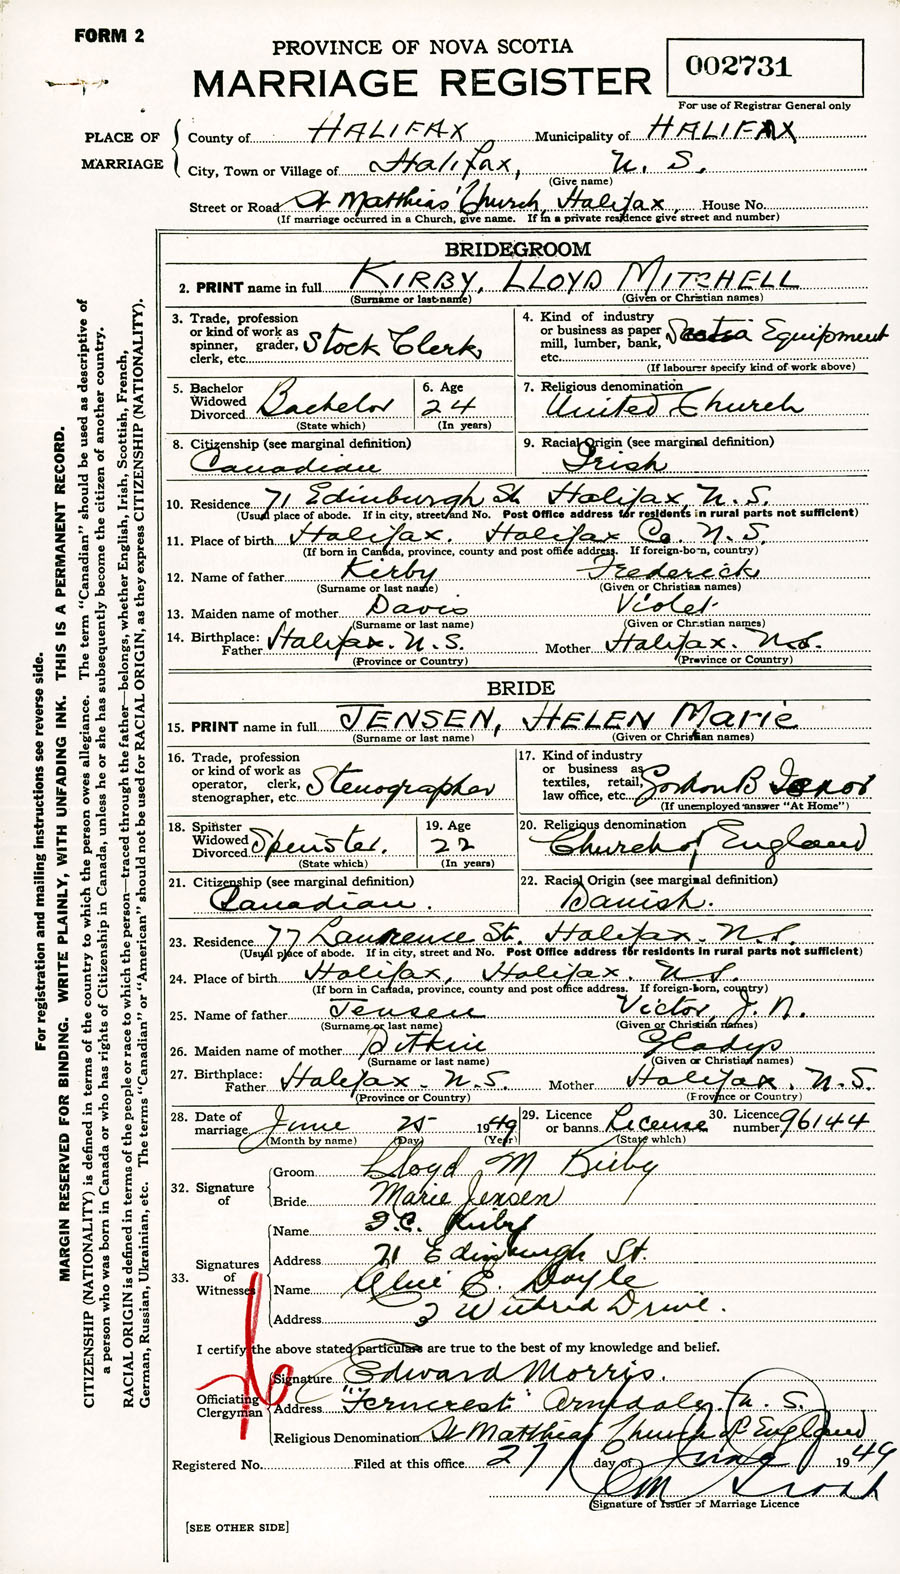 FORM 2
PROVINCE OF NOVA SCOTIA
MARRIAGE REGISTER
002731
For use of Registrar General only
PLACE OF MARRIAGE
County of HALIFAX Municipality of HALIFAX
City, Town or Village of Halifax, N. S.
(Give name)
Street or Road St Matthias' Church, Halifax, House No.
(If marriage occurred in a Church, give name. If in a private residence give street and number)
BRIDEGROOM
2. PRINT name in full KIRBY, LLOYD MITCHELL
(Surname or last name) (Given or Christian names)
3. Trade, profession or kind of work as spinner, grader, clerk, etc. Stock Clerk
4. Kind of industry or business as paper mill, lumber, bank, etc. Scotia Equipment
(If labourer specify kind of work above)
5. Bachelor Widowed Divorced Bachelor
(State which)
6. Age 24
(In years)
7. Religious denomination United Church
8. Citizenship (see marginal definition) Canadian
9. Racial Origin (see marginal definition) Irish
10. Residence 71 Edinburgh St. Halifax, N.S.
(Usual place of abode. If in city, street and No. Post Office address for residents in rural parts not sufficient)
11. Place of birth Halifax. Halifax Co. N.S.
(If born in Canada, province, county and post office address. If foreign-born, country)
12. Name of father Kirby Frederick
(Surname or last name) (Given or Christian names)
13. Maiden name of mother Davis Violet
(Surname or last name) (Given or Christian names)
14. Birthplace: Father Halifax. N.S. Mother Halifax. N.S.
(Province or Country) (Province or Country)
BRIDE
15. PRINT name in full JENSEN, HELEN Marie
(Surname or last name) (Given or Christian names)
16. Trade, profession or kind of work as operator, clerk, stenographer, etc. Stenographer
17. Kind of industry or business as textiles, retail, law office, etc. Gordon B
(If unemployed answer "At Home")
18. Spinster Widowed Divorced Spinster.
(State which)
19. Age 22
(In years)
20. Religious denomination Church of England
21. Citizenship (see marginal definition) Canadian.
22. Racial Origin (see marginal definition) Danish.
23. Residence 77 Lawrence St. Halifax. N.S.
(Usual place of abode. If in city, street and No. Post Office address for residents in rural parts not sufficient)
24. Place of birth Halifax, Halifax. N.S.
(If born in Canada, province, county and post office address. If foreign-born, country)
25. Name of father Jensen Victor, J. N.
(Surname or last name) (Given or Christian names)
26. Maiden name of mother Pitkin Gladys
(Surname or last name) (Given or Christian names)
27. Birthplace: Father Halifax. N.S. Mother Halifax. N.S.
(Province or Country) (Province or Country)
28. Date of marriage June 25 1949
(Month by name) (Day) (Year)
29. Licence or banns License
(State which)
30. Licence number 96144
32. Signature of
Groom Lloyd M Kirby
Bride Marie Jensen
33. Signatures of Witnesses
Name F.C. Kirby
Address 71 Edinburgh St.
Name E. Doyle
Address Drive.
I certify the above stated particulars are true to the best of my knowledge and belief.
Officiating Clergyman
Signature Edward Morris.
Address "Ferncrest" Armdale, N. S.
Religious Denomination St Matthias Church of England
Registered No. Filed at this office 27 day of June 1949
Signature of Issuer of Marriage Licence
[SEE OTHER SIDE]
For registration and mailing instructions see reverse side.
MARGIN RESERVED FOR BINDING. WRITE PLAINLY, WITH UNFADING INK. THIS IS A PERMANENT RECORD.
CITIZENSHIP (NATIONALITY) is defined in terms of the country to which the person owes allegiance. The term "Canadian" should be used as descriptive of
a person who was born in Canada or who has rights of Citizenship in Canada, unless he or she has subsequently become the citizen of another country.
RACIAL ORIGIN is defined in terms of the people or race to which the person—traced through the father—belongs, whether English, Irish, Scottish, French,
German, Russian, Ukrainian, etc. The terms "Canadian" or "American" should not be used for RACIAL ORIGIN, as they express CITIZENSHIP (NATIONALITY).